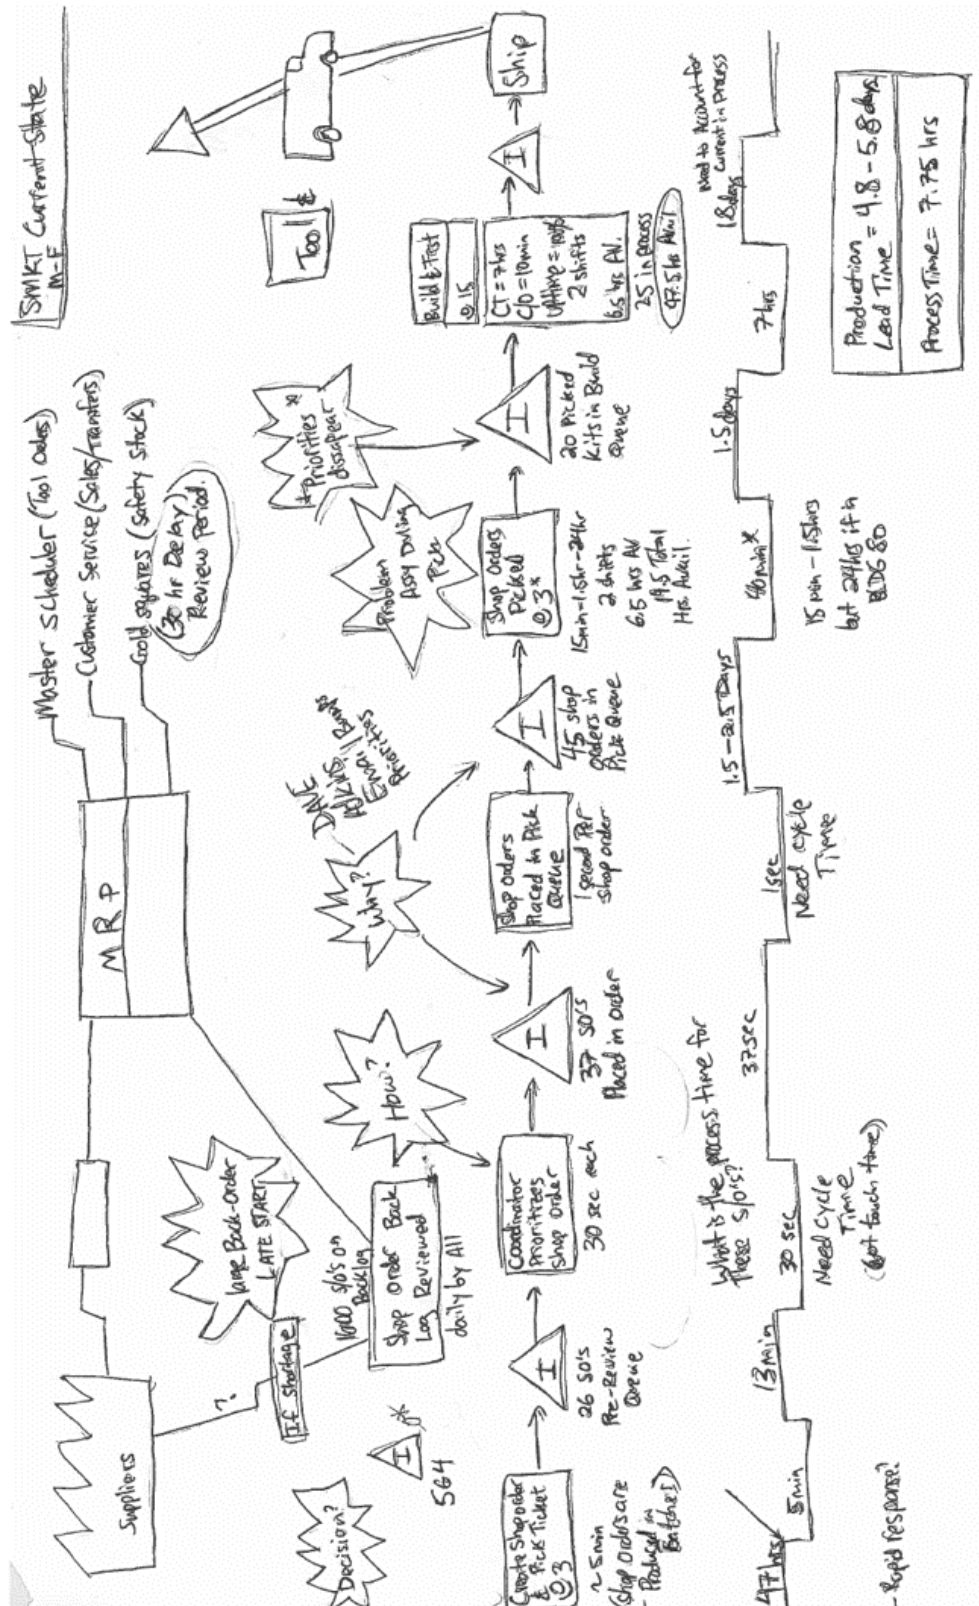 SMKT Current State
M-F
Master Scheduler (Tool Orders)
Customer Service (Sales/Transfers)
Gold Squares (Safety Stock)
(30 hr Delay)
Review Period.
MRP
Suppliers
?
If Shortage
large Back-Order
LATE START
1600 S/O's on
Backlog
Shop Order Back
Log Reviewed
daily by All
Decision?
I
564
How?
Why?
DAVE
Email Bumps
Priorities
Problem
Assy During
Pick
* Priorities
dissapear
Tool &
Ship
Create Shop order
& Pick Ticket
@ 3
~ 5 min
(Shop Orders are
Produced in
Batches)
I
26 SO'S
Pre-Review
Queue
Coordinator
Prioritizes
Shop Order
30 sec each
I
37 SO'S
Placed in order
Shop orders
Placed in Pick
Queue
1 second Per
shop order
I
45 shop
orders in
Pick Queue
Shop Orders
Picked
@ 3*
15min-1.5hr-24hr
2 shifts
6.5 hrs AV
19.5 Total
Hrs. Avail.
I
20 Picked
Kits in Build
Queue
Build & Test
@ 15
CT = 7hrs
C/O = 10min
Uptime = 100%
2 shifts
6.5 hrs AV.
25 in process
97.5 hr Avail
I
47 hrs
5 min
13 min
30 sec
37 sec
1 sec
1.5-2.5 Days
40 min *
1.5 days
7 hrs
1.8 days
What is the process time for
these S/O's?
Need Cycle
Time
(Got touch time)
Need cycle
Time
15 min - 1.5hrs
but 24hrs if in
BLDG 80
Need to Account for
Current in Process
Production
Lead Time = 4.8 - 5.8 days
Process Time = 7.75 hrs
- Rapid Response?